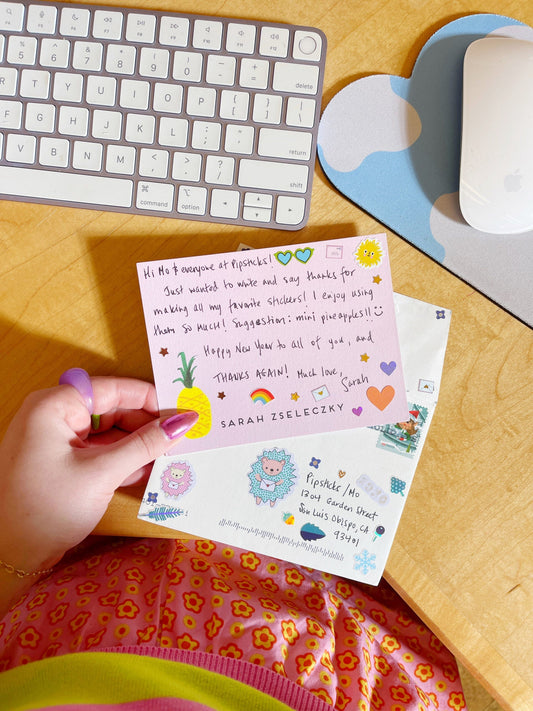 Hi Mo & everyone at Pipsticks!
Just wanted to write and say thanks for
making all my favorite stickers! I enjoy using
them SO MUCH! Suggestion: mini pineapples!!
Happy New Year to all of you, and
THANKS AGAIN! Much love,
Sarah
SARAH ZSELECZKY
Pipsticks/Mo
1304 Garden Street
San Luis Obispo, CA
93401
delete
return
shift
command
option